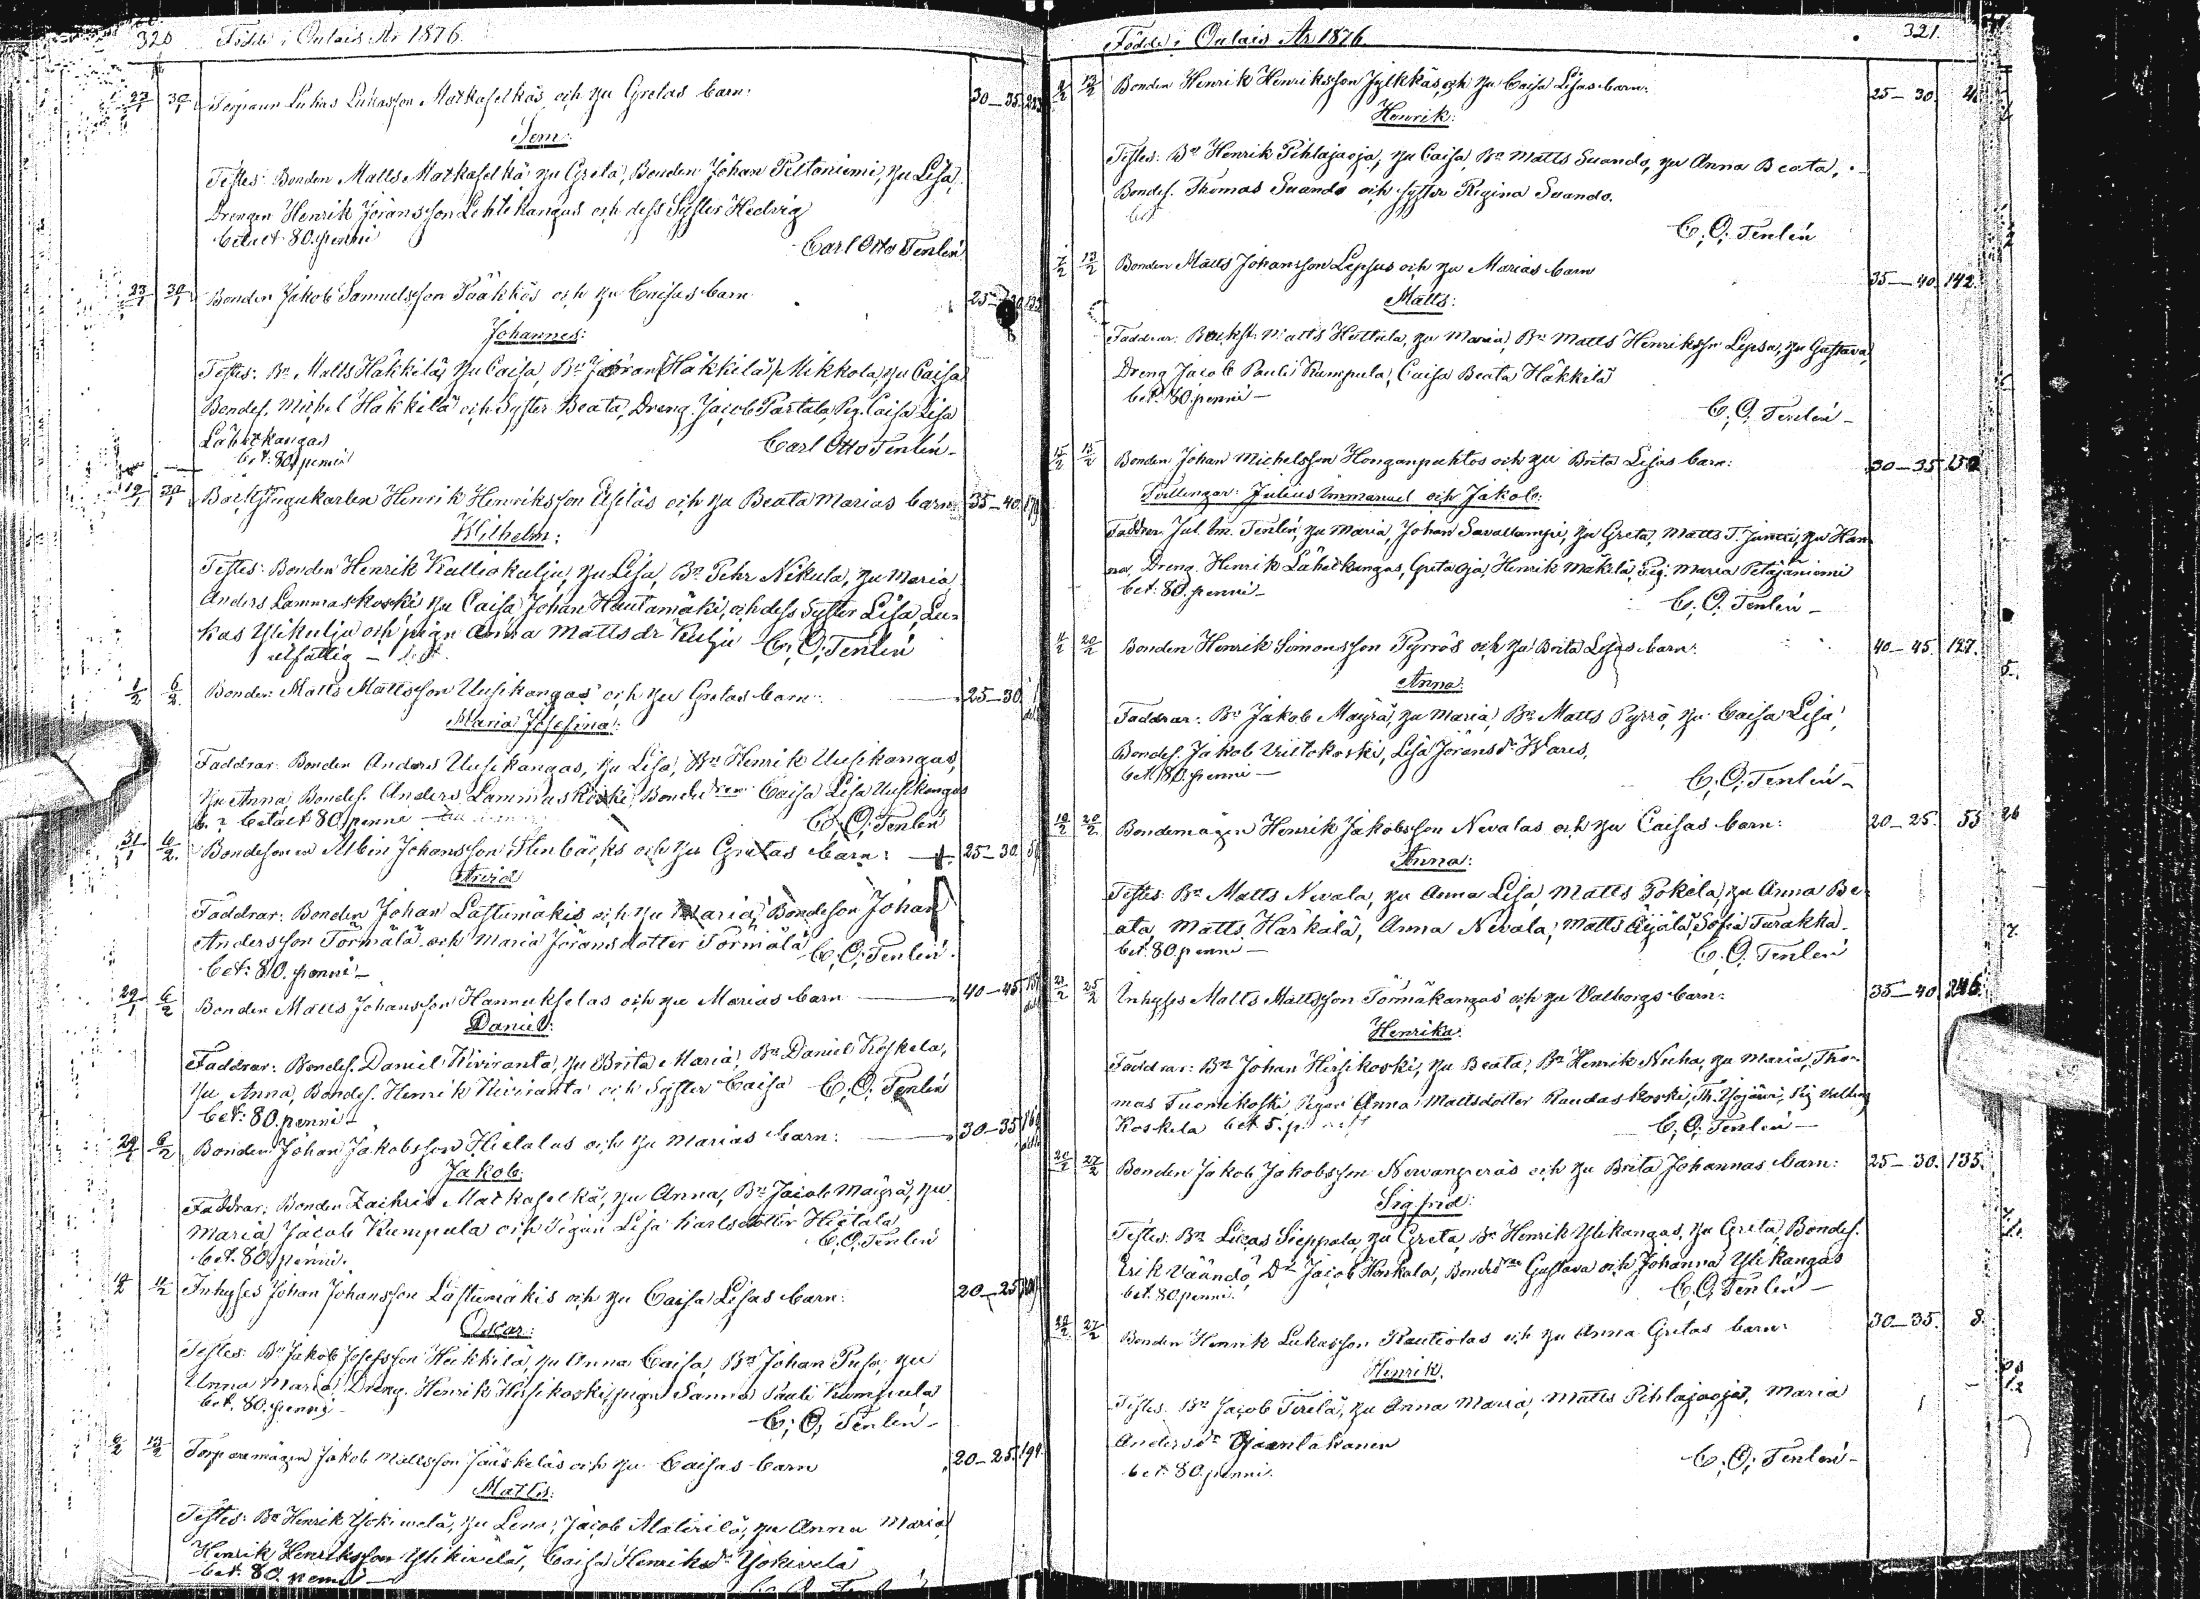 320 Födde i Oulais År 1876.
23/1 30/1 Torparen Lukas Lukasson Matkaselkäs och hu Gretas barn: 30–35
Sem:
Testes: Bonden Matts Matkaselkä hu Greta, Bonden Johan Peltoniemi, hu Lisa
Drengen Henrik Joransson Lehtikangas och dess Syster Hedvig
betalt 80. penni
Carl Otto Tenlén
23/1 30/1 Bonden Jakob Samuelsson Pääkkös och hu Caisas barn 25–
Johannes:
Testes: Bn Matts Häkkilä, hu Caisa, Bn Jöran Häkkilä, Mikkola, hu Caisa
Bondes. Mickel Häkkilä och Syster Beata, Dreng. Jacob Partala, Pig. Caisa Lisa
Lähetkangas
bet: 80 penni
Carl Otto Tenlén
30/1 Henrik Henriksson och hu Beata Marias barn: 35–40
Wilhelm:
Testes: Bonden Henrik Kalliokulju, hu Lisa, Bn Pehr Nikula, hu Maria
Anders Lammaskoski hu Caisa, Johan Hautamäki, och dess Syster Lisa, Lu-
kas Ylikulju och pign Anna Mattsdr Kulju C. O. Tenlén
utfattig
1/2 6/2 Bonden Matts Mattsson Uusikangas och hu Gretas barn: 25–30
Maria Josefina:
Faddrar: Bonden Anders Uusikangas, hu Lisa, Bn Henrik Uusikangas,
hu Anna, Bondes. Anders Lammaskoski, Caisa Lisa Uusikangas
betalt 80 penni
C. O. Tenlén
31/1 6/2 Bondesonen Albin Johansson Stenbäcks och hu Gretas barn: 25–30
Arvid
Faddrar: Bonden Johan Lastumäkis och hu Maria, Bondeson Johan
Andersson Törmälä och Maria Jöransdotter Törmälä C. O. Tenlén
bet: 80. penni
29/1 6/2 Bonden Matts Johansson Hannukselas och hu Marias barn 40–45
Daniel:
Faddrar: Bondes. Daniel Kiviranta, hu Brita Maria, Bn Daniel Koskela,
hu Anna, Bondes. Henrik Kiviranta och Syster Caisa C. O. Tenlén
bet: 80. penni
29/1 6/2 Bonden Johan Jakobsson Hietalas och hu Marias barn: 30–35
Jakob:
Faddrar: Bonden Zachris Matkaselkä, hu Anna, Bn Jacob Mäyrä, hu
Maria, Jacob Kumpula och Pigan Lisa Karlsdotter Hietala
bet. 80 penni.
C. O. Tenlén
Inhyses Johan Johansson Lastumäkis och hu Caisa Lisas barn: 20–25
Oscar:
Testes: Bn Jakob Josefsson Heikkilä, hu Anna Caisa, Bn Johan Pusa, hu
Anna Maria, Dreng. Henrik Hirsikoski, pign Sanna Pauli Kumpula
bet. 80. penni
C. O. Tenlén
6/2 13/2 Torparemågen Jakob Mattsson Jääskeläs och hu Caisas barn 20–25
Matts:
Testes: Bn Henrik Ylikivelä, hu Lena, Jacob hu Anna Maria
Henrik Henriksson Ylikivelä, Caisa Henriksdr
bet: 80. penni
Födde i Oulais År 1876. 321.
13/2 Bonden Henrik Henriksson Jylkkäs och hu Caisa Lisas barn: 25–30.
Henrik:
Testes: Bn Henrik Pihlajaoja, hu Caisa, Bn Matts Suando, hu Anna Beata,
Bondes. Thomas Suando och syster Regina Suando.
bet
C. O. Tenlén
7/2 13/2 Bonden Matts Johansson Lepsus och hu Marias barn 35–40. 142.
Matts:
Faddrar: Matts Huttula, hu Maria, Bn Matts Henriksson Lepsu, hu Gustava,
Dreng Jacob Pauli Kumpula, Caisa Beata Häkkilä
bet: 80 penni
C. O. Tenlén
15/2 15/2 Bonden Johan Michelsson Honganpuhtos och hu Brita Lisas barn: 30–35
Tvillingar: Julius Immanuel och Jakob:
Faddrar Jul. Im. Tenlén, hu Maria, Johan Savallampi, hu Greta, Matts T. Juntti, hu Han-
na, Dreng. Henrik Lähetkangas, Greta Oja, Henrik Mäkelä, Pig. Maria Petäjäniemi
bet: 80. penni
C. O. Tenlén
20/2 Bonden Henrik Simonsson Pyrrös och hu Brita Lisas barn: 40–45. 127.
Anna:
Faddrar: Bn Jakob Mäyrä, hu Maria, Bn Matts Pyrrö, hu Caisa Lisa,
Bondes. Jakob Lisa Jöransdr Wares,
bet. 80. penni
C. O. Tenlén
20/2 Bondemågen Henrik Jakobsson Nevalas och hu Caisas barn: 20–25. 55
Anna:
Testes: Bn Matts Nevala, hu Anna Lisa, Matts Pokela, hu Anna Be-
ata, Matts Härkälä, Anna Nevala, Matts Äijälä, Sofia Turakka
bet. 80 penni
C. O. Tenlén
25/2 Inhyses Matts Mattsson Törmäkangas och hu Valborgs barn: 35–40 246.
Henrika:
Faddrar: Bn Johan Hirsikoski, hu Beata, Bn Henrik Nuha, hu Maria, Tho-
mas Tuomikoski, Pigan Anna Mattsdotter Raudaskoski,
Koskela bet
C. O. Tenlén
27/2 Bonden Jakob Jakobsson Nevanperäs och hu Brita Johannas barn: 25–30. 135.
Sigfrid:
Testes: Bn Lucas Sieppala, hu Greta, Bn Henrik Ylikangas, hu Greta, Bondes.
Erik Väändö, Dr Jacob Koskela, Gustava och Johanna Ylikangas
bet. 80 penni.
C. O. Tenlén
27/2 Bonden Henrik Lukasson Rautiolas och hu Anna Gretas barn: 30–35. 8.
Henrik.
Testes. Bn Jacob Terelä, hu Anna Maria, Matts Pihlajaoja, Maria
Andersdr Ojantakanen
bet: 80. penni.
C. O. Tenlén